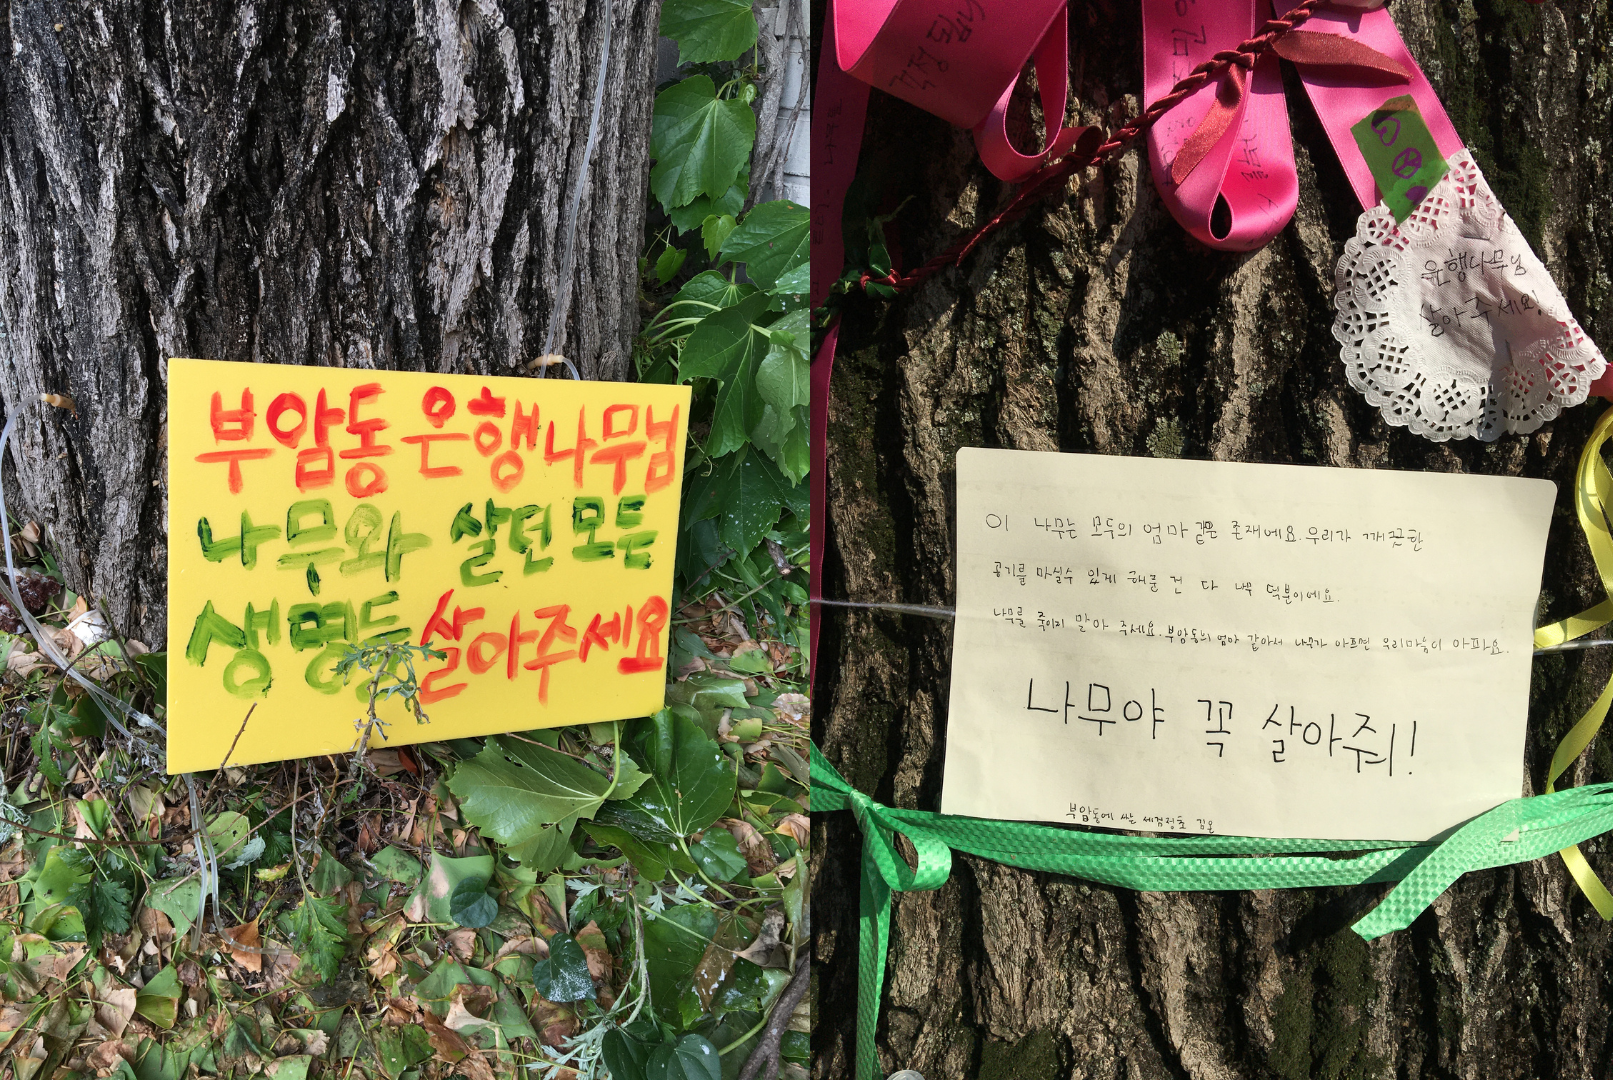 부암동 은행나무님
나무와 살던 모든
생명들 살아주세요
걱정 됩니
은행나무님
살아주세요!
이 나무는 모두의 엄마 같은 존재에요. 우리가 깨끗한
공기를 마실수 있게 해준 건 다 나무 덕분이에요.
나무를 죽이지 말아 주세요. 부암동의 엄마 같아서 나무가 아프면 우리마음이 아파요.
나무야 꼭 살아줘!
부암동에 사는 세검정초